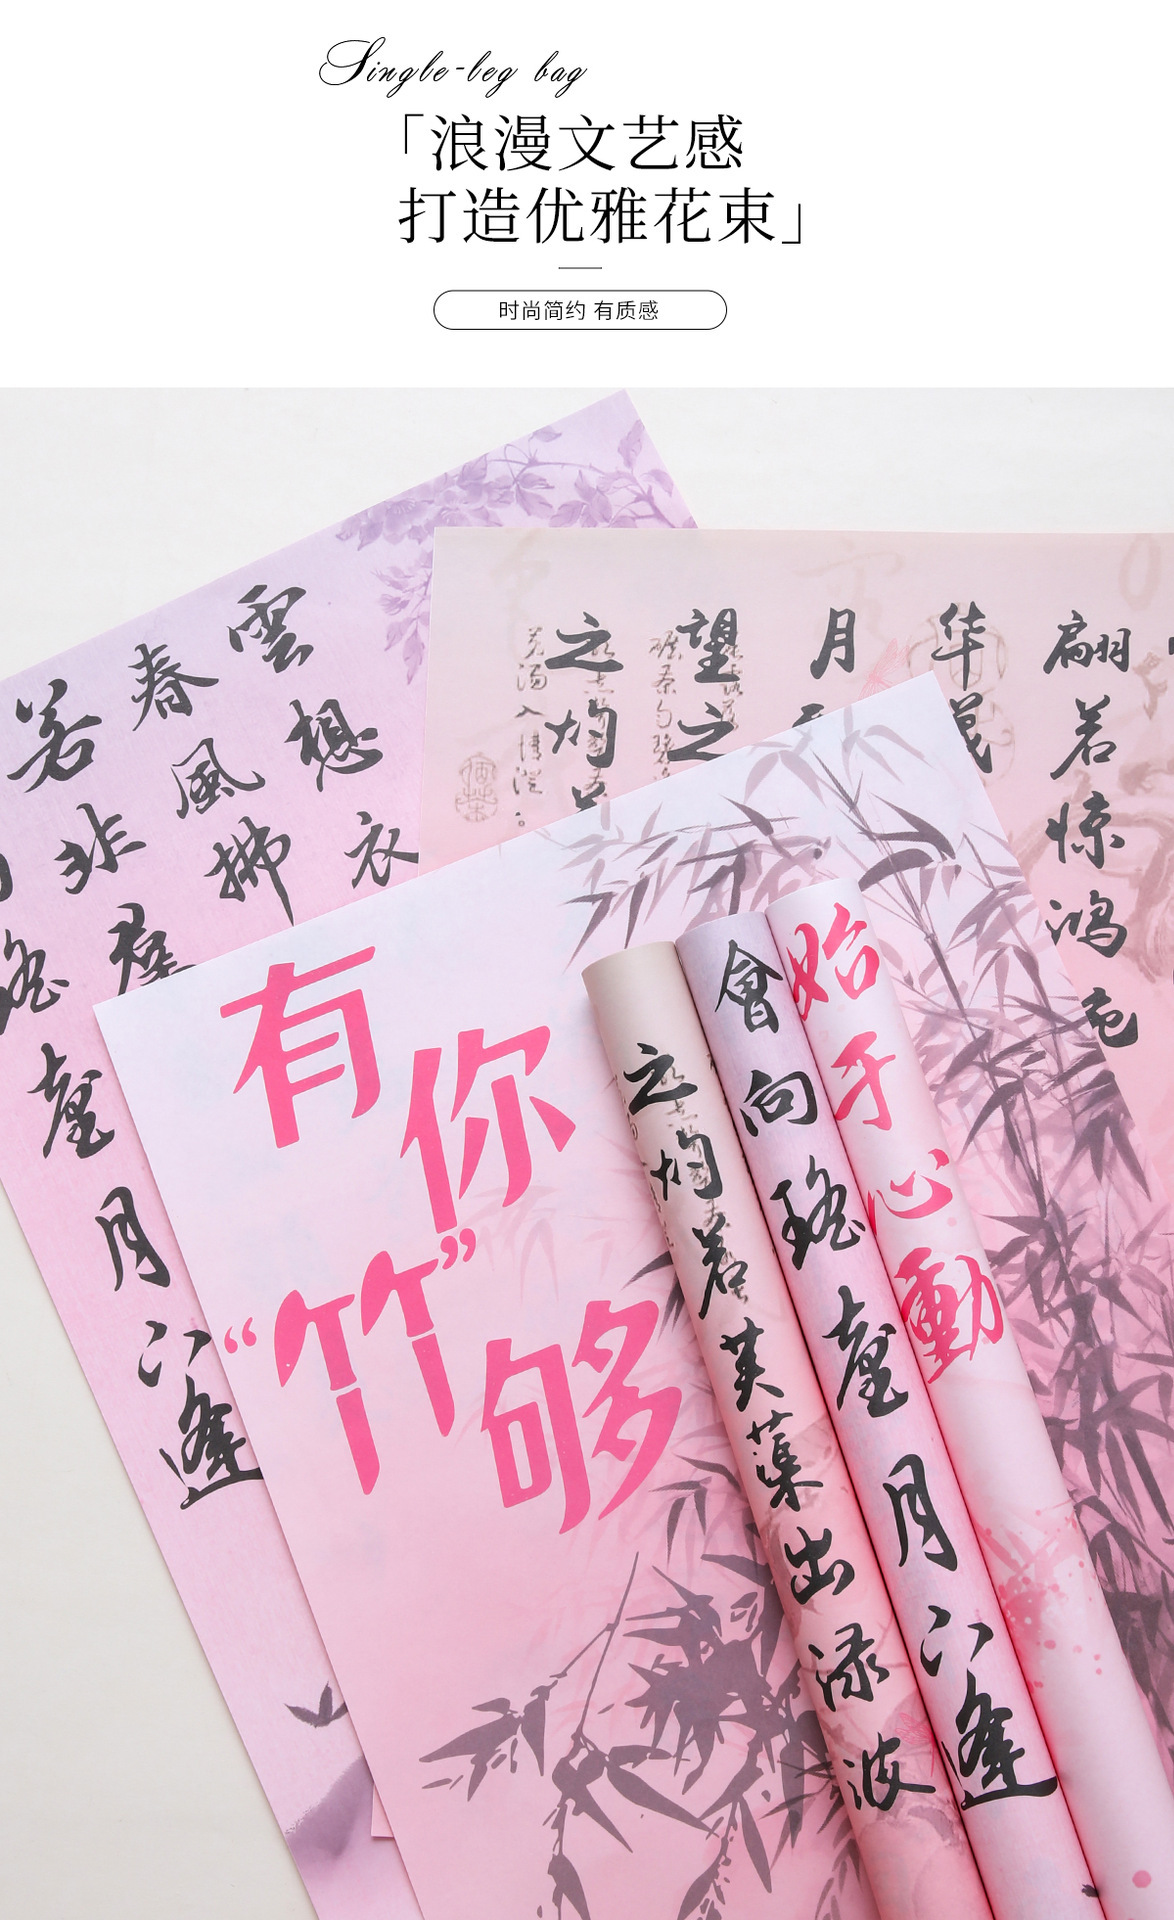 Single-leg bag
「浪漫文艺感
打造优雅花束」
时尚简约 有质感
雲想衣
春風拂
若非羣
瑤臺月下逢
翩若惊鸿
华茂
月
望之
之灼
有你
“竹”够
始于心動
會向瑤臺月下逢
之灼若芙蕖出渌波